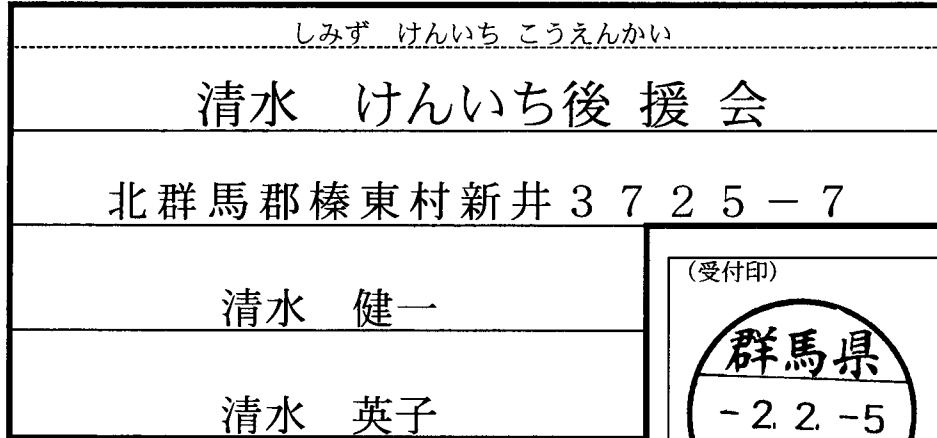 しみず けんいち こうえんかい
清水 けんいち後援会
北群馬郡榛東村新井3725-7
清水 健一
清水 英子
(受付印)
群馬県
-2. 2. -5